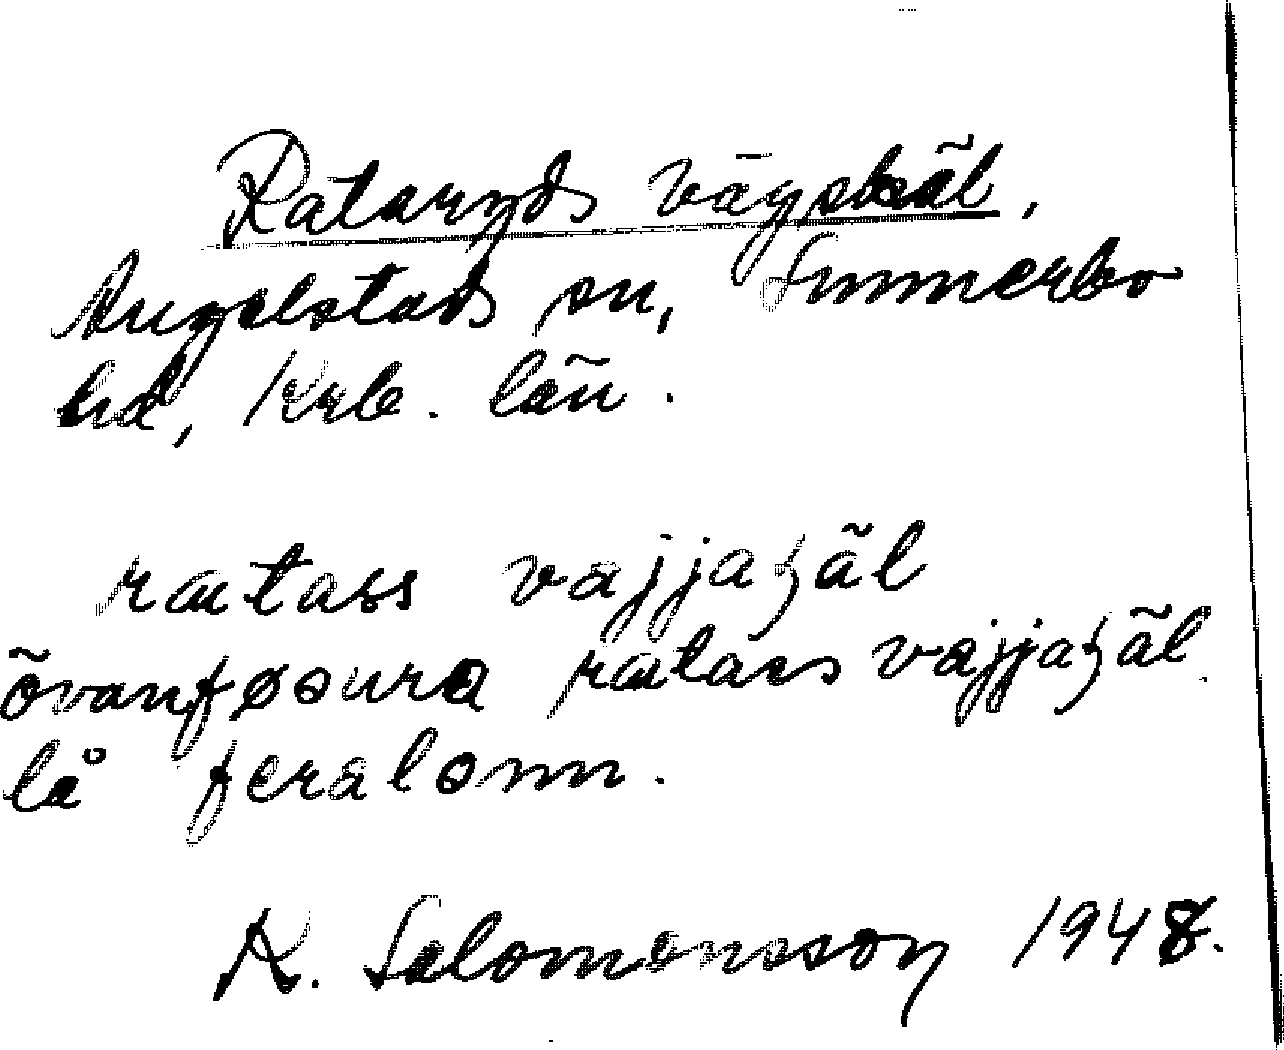 Rataryds vägskäl,
Angelstads sn, Sunnerbo
hd, Krb. län.
ratass vajjaʒäl
övanfɵsura ratass vajjaʒäl
lå feralonn.
K. Salomonsson 1948.